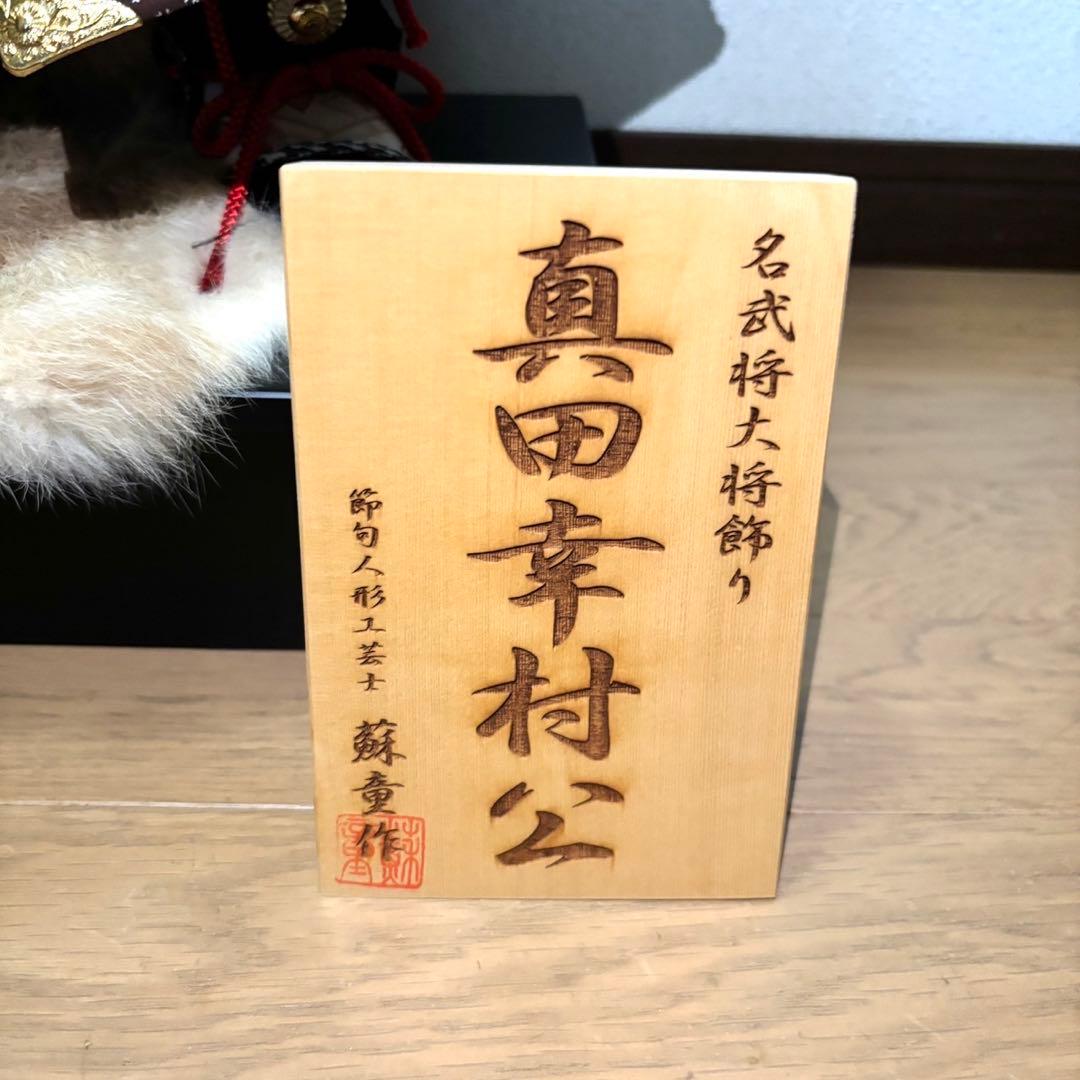 名武将大将飾り
真田幸村公
節句人形工芸士 蘇童作